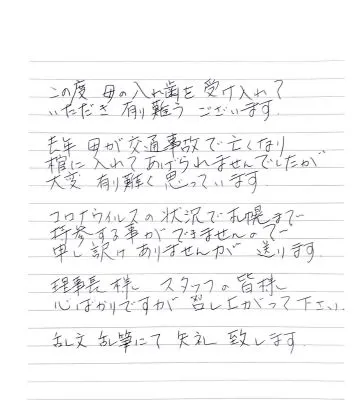 この度 母の入れ歯を受け入れて
いただき 有り難う ございます.
去年 母が交通事故で亡くなり
棺に入れてあげられませんでしたが
大変 有り難く 思っています.
コロナウイルスの状況で札幌まで
持参する事ができませんので
申し訳けありませんが 送ります.
理事長様 スタッフの皆様
心ばかりですが 召し上がって下さい.
乱文 乱筆にて 失礼 致します.